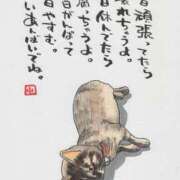 日頑張ってたら
壊れちゃうよ。
日休んでたら
腐っちゃうよ。
日がんばって
日やすむ。
いあんばいでね。